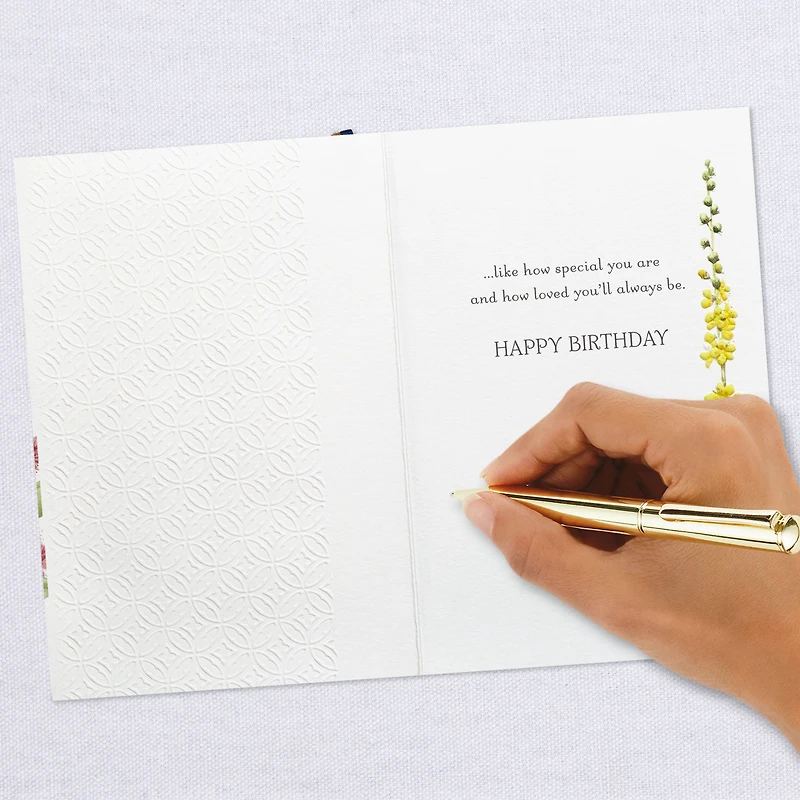 ...like how special you are
and how loved you'll always be.
HAPPY BIRTHDAY